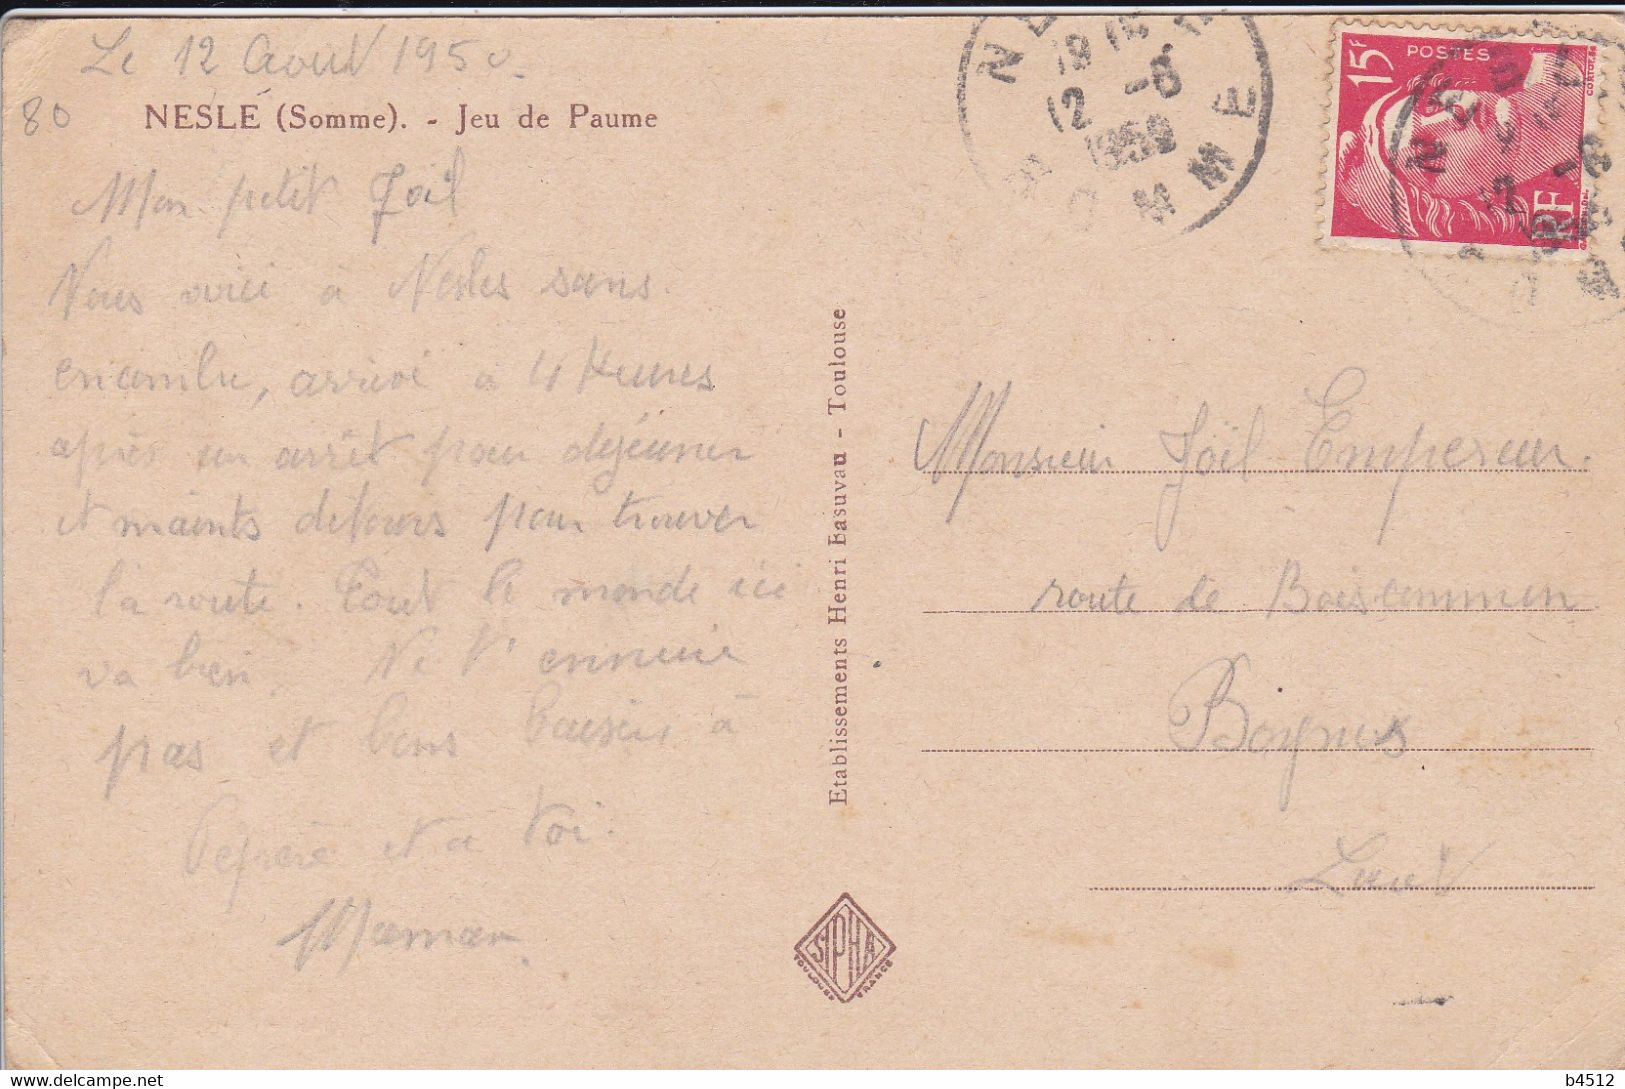 Le 12 Aout 1950.
80
NESLE (Somme). - Jeu de Paume
Mon petit Joël
Nous voici à Nesles sans
encombre, arrivé à 4 Heures
après un arrêt pour dejéuner
et maints detours pour trouver
la route. Tout le monde ici
va bien. Ne t'ennuie
pas et bons baisers à
Pepère et à toi.
Maman
Etablissements Henri Basuvau - Toulouse
SIPHA
TOULOUSE FRANCE
12 -8
1950
SOMME
15F
POSTES
RF
Monsieur Joël Empereur.
route de Boiscommun
Boynes
Loiret
b4512